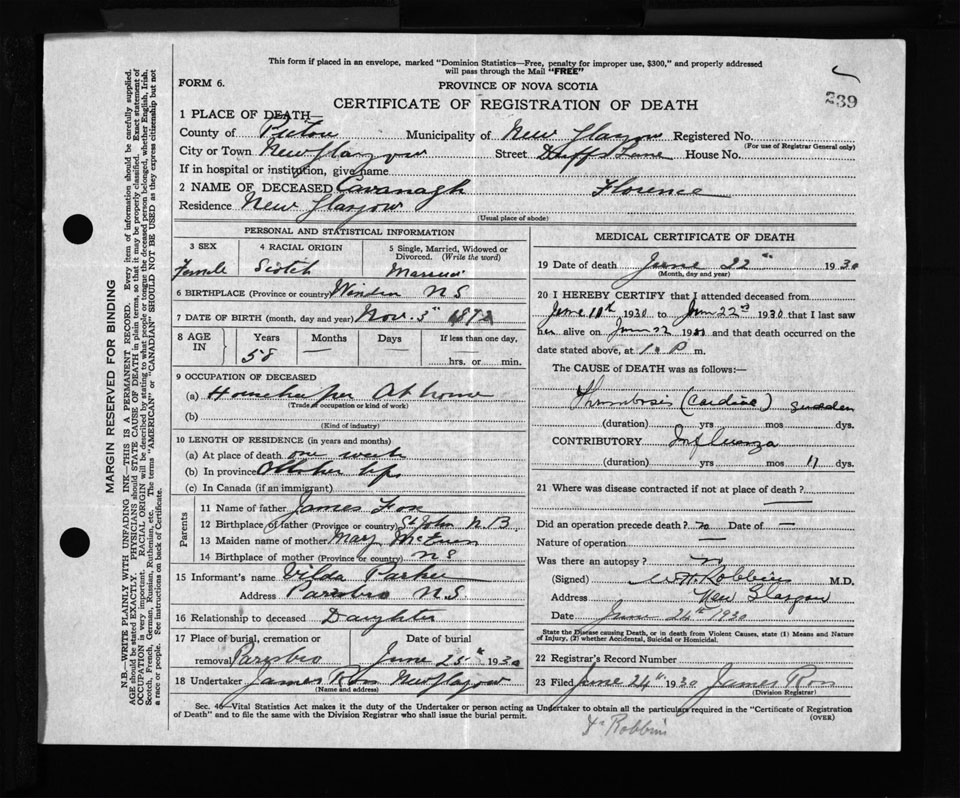 This form if placed in an envelope, marked "Dominion Statistics—Free, penalty for improper use, $300," and properly addressed
will pass through the Mail "FREE"
FORM 6.
PROVINCE OF NOVA SCOTIA
CERTIFICATE OF REGISTRATION OF DEATH
239
1 PLACE OF DEATH—
County of Pictou Municipality of New Glasgow Registered No.
(For use of Registrar General only)
City or Town New Glasgow Street Duffs Lane House No.
If in hospital or institution, give name
2 NAME OF DECEASED Cavanagh Florence
Residence New Glasgow
(Usual place of abode)
MARGIN RESERVED FOR BINDING
N.B.—WRITE PLAINLY WITH UNFADING INK—THIS IS A PERMANENT RECORD. Every item of information should be carefully supplied.
AGE should be stated EXACTLY. PHYSICIANS should STATE CAUSE OF DEATH in plain terms, so that it may be properly classified. Exact statement of
OCCUPATION is very important. RACIAL ORIGIN will be described by stating to what people or tongue the deceased person belonged, whether English, Irish,
Scotch, French, German, Russian, Ruthenian, etc. The terms "AMERICAN" or "CANADIAN" SHOULD NOT BE USED as they express citizenship but not
a race or people. See instructions on back of Certificate.
PERSONAL AND STATISTICAL INFORMATION
3 SEX
Female
4 RACIAL ORIGIN
Scotch
5 Single, Married, Widowed or
Divorced. (Write the word)
Married
6 BIRTHPLACE (Province or country) N S
7 DATE OF BIRTH (month, day and year) Nov. 3rd 1872
8 AGE IN
Years Months Days If less than one day,
58 — hrs. or min.
9 OCCUPATION OF DECEASED
(a) Housekeeper At home
(Trade or occupation or kind of work)
(b)
(Kind of industry)
10 LENGTH OF RESIDENCE (in years and months)
(a) At place of death one week
(b) In province
(c) In Canada (if an immigrant)
Parents
11 Name of father James Fox
12 Birthplace of father (Province or country) St John N.B
13 Maiden name of mother Mary McEwen
14 Birthplace of mother (Province or country) N S
15 Informant's name Vilda Parker
Address Parrsboro N.S.
16 Relationship to deceased Daughter
17 Place of burial, cremation or Date of burial
removal Parrsboro June 25th 1930
18 Undertaker James Ross New Glasgow
(Name and address)
MEDICAL CERTIFICATE OF DEATH
19 Date of death June 22nd 1930
(Month, day and year)
20 I HEREBY CERTIFY that I attended deceased from
June 11th 1930 to June 22nd 1930 that I last saw
her alive on June 22 1930 and that death occurred on
the date stated above, at P m.
The CAUSE of DEATH was as follows:—
Thrombosis (Cardiac) sudden
(duration) yrs mos dys.
CONTRIBUTORY Influenza
(duration) yrs mos 11 dys.
21 Where was disease contracted if not at place of death?
—
Did an operation precede death? no Date of —
Nature of operation —
Was there an autopsy? no
(Signed) W.H. Robbins M.D.
Address New Glasgow
Date June 24th 1930
State the Disease causing Death, or in death from Violent Causes, state (1) Means and Nature
of Injury, (2) whether Accidental, Suicidal or Homicidal.
22 Registrar's Record Number
23 Filed June 24th 1930 James Ross
(Division Registrar)
Sec. 40—Vital Statistics Act makes it the duty of the Undertaker or person acting as Undertaker to obtain all the particulars required in the "Certificate of Registration
of Death" and to file the same with the Division Registrar who shall issue the burial permit.
(OVER)
Dr Robbins